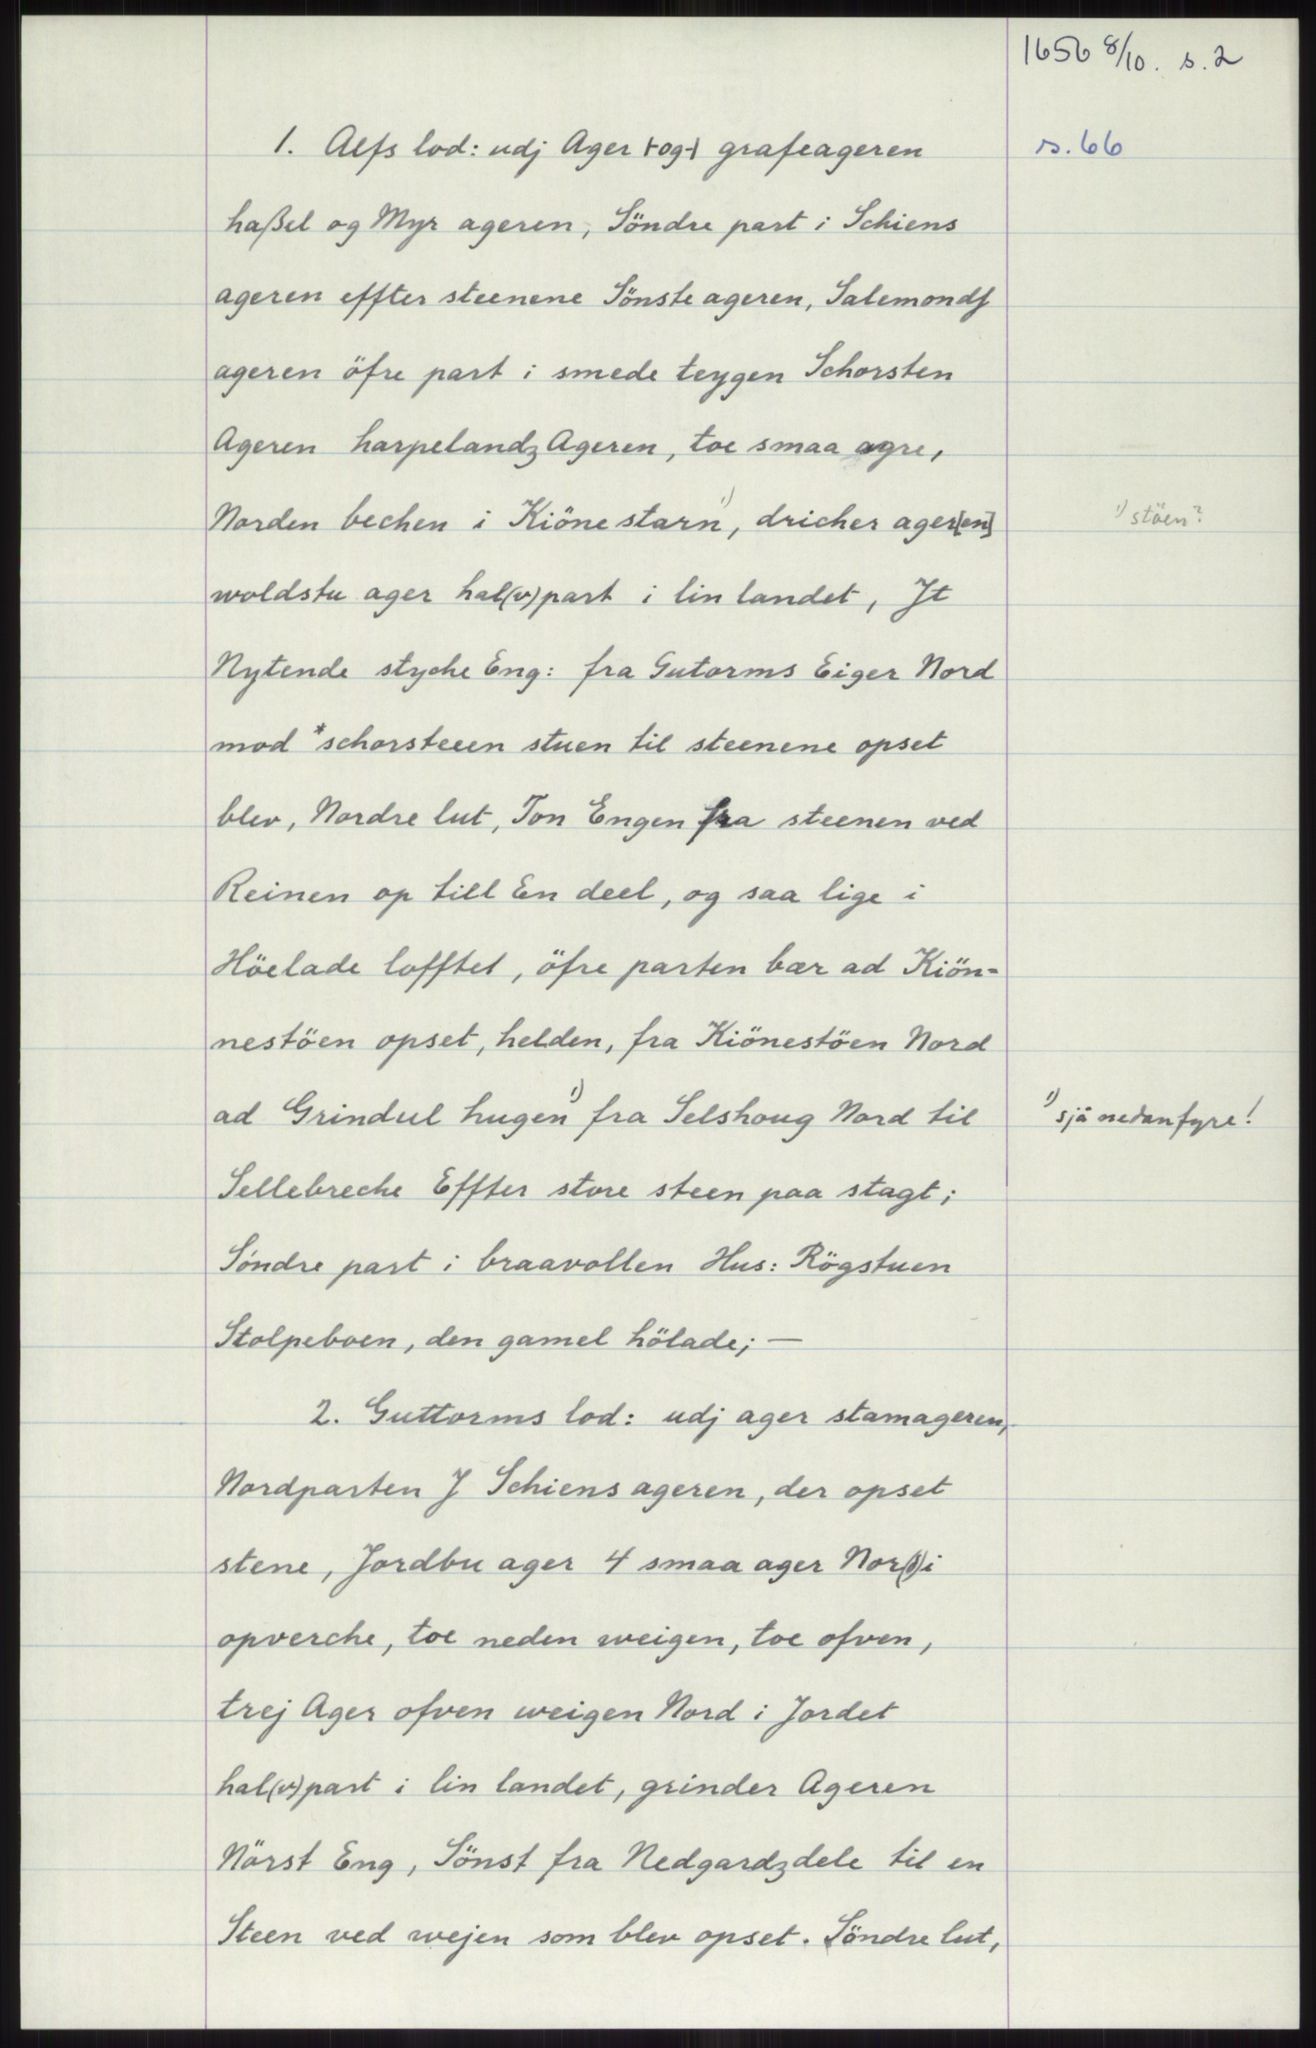 1656 8/10. s. 2
1. Alfs lod: udj Ager |-og-| grafeageren
s. 66
haßel og Myr ageren, Söndre part i Schiens
ageren effter steenene Sönste ageren, Salemondſ
ageren öfre part i smede teygen Schorsten
Ageren harpelandz Ageren, toe smaa agre,
Norden bechen i Kiöne starn 1), dricher ager[en]
1) stöen?
woldstu ager hal(v)part i lin landet, Jt
Nytende styche Eng: fra Gutorms Eiger Nord
mod *schorsteeen stuen til steenene opset
blev, Nordre lut, Ton Engen fra steenen ved
Reinen op till En deel, og saa lige i
Höelade lofftet, öfre parten bær ad Kiön-
nestöen opset, helden, fra Kiönestöen Nord
ad Grindul hugen 1) fra Selshoug Nord til
1) sjå nedanfyre!
Sellebreche Effter store steen paa stagt;
Söndre part i braavollen Hus: Rögstuen
Stolpeboen, den gamel hölade; —
2. Guttorms lod: udj ager stamageren,
Nordparten J Schiens ageren, der opset
stene, Jordbu ager 4 smaa ager Nor(d) i
opverche, toe neden weigen, toe ofven,
trej Ager ofven weigen Nord i Jordet
hal(v)part i lin landet, grinder Ageren
Nörst Eng, Sönst fra Nedgardz dele til en
Steen ved wejen som blev opset. Söndre lut,